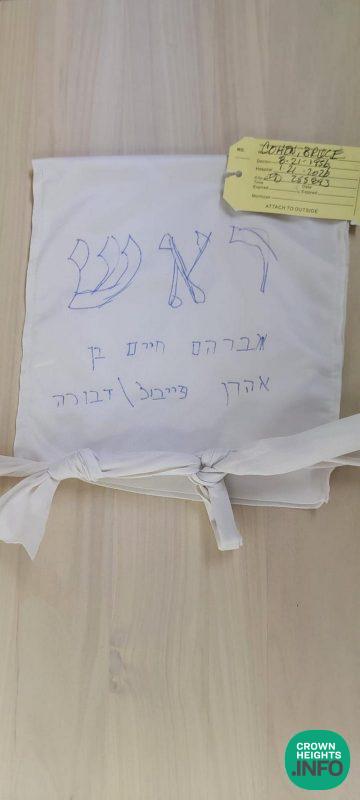 COHEN, BRUCE
8-21-1956
1-21-2026
ID 255843
Expired
Date
Expired
Mortician
ATTACH TO OUTSIDE
ראש
אברהם חיים בן
אהרן פייבוש / דבורה
CROWN
HEIGHTS
.INFO